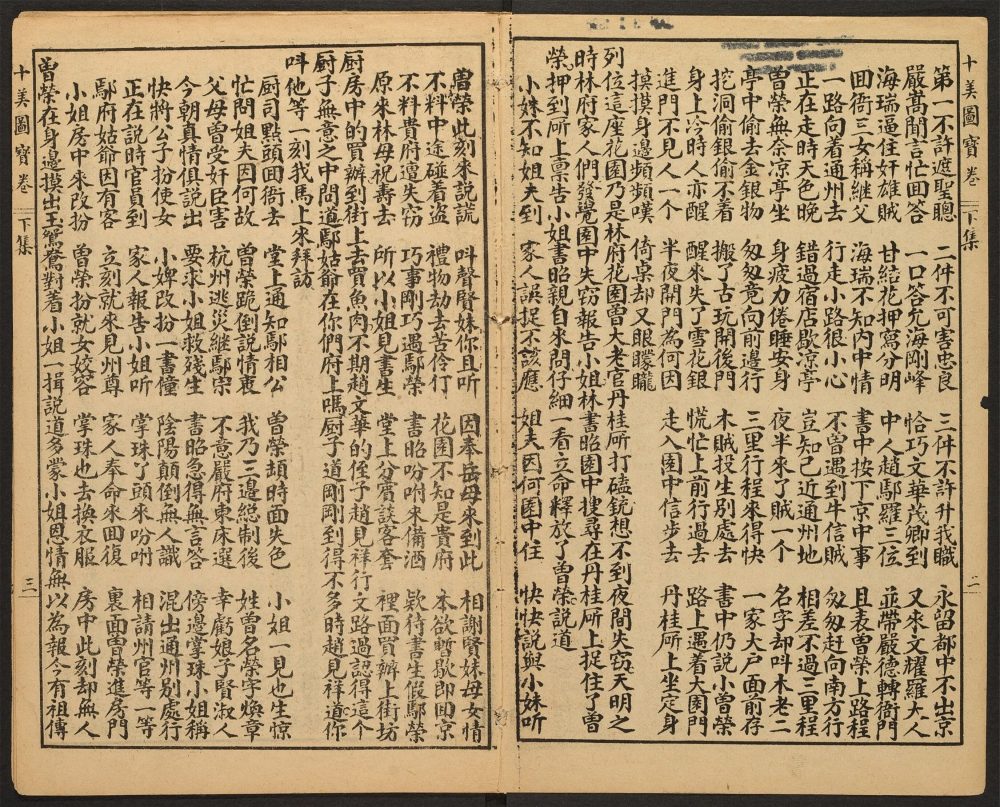 十美圖寶卷 下集 二
第一不許遮聖聰 二件不可害忠良 三件不許升我職 永留都中不出京
嚴嵩聞言忙回答 一口答允海剛峰 恰巧文華茂卿到 又來文耀羅大人
海瑞逼住奸雄賊 甘結花押寫分明 中人趙鄢羅三位 並榮嚴德轉衙門
回衙三女稱繼父 海瑞不知內中情 書中按下京中事 且表曾榮上路程
一路向着通州去 行走小路很小心 不曾遇到牛信賊 匆匆赶向南方行
正在走時天色晚 錯過宿店歇凉亭 豈知己近通州地 相差不過三里程
曾榮無奈凉亭坐 身疲力倦睡安身 夜半來了賊一個 名字却叫木老二
亭中偷去金銀物 匆匆竟向前邊行 三里行程來得快 一家大戶面前存
挖洞偷銀偷不着 搬了古玩開後門 木賊投生別處去 書中仍說小曾榮
身上冷時人亦醒 醒來失了雪花銀 慌忙上前行過去 路上遇着大園門
進門不見人一個 半夜開門為何因 走入園中信步去 丹桂所上坐定身
摸摸身邊頻頻嘆 倚桌却又眼朦朧
列位這座花園乃是林府花園曾大老官丹桂所打磕銃想不到夜間失窃天明之
時林府家人們發覺園中失窃報告小姐林書昭園中搜尋在丹桂所上捉住了曾
榮押到所上禀告小姐書昭親自來問仔細一看立命釋放了曾榮說道
小妹不知姐夫到 家人誤捉不該應 姐夫因何園中住 快快說與小妹聽
曾榮此刻來說謊 呌聲賢妹你且听 因奉岳母來到此 相謝賢妹母女情
不料中途碰着盜 禮物劫去苦伶仃 花園不知是貴府 本欲暫歇即回京
不料貴府遭失窃 巧事剛巧遇鄢榮 書昭吩咐來備酒 欵待書生假鄢榮
原來林母祝壽去 所以小姐見書生 堂上分賓談客套 裡面買辦上街坊
厨房中的買辦到街上去買魚肉不期趙文華的侄子趙見祥行文路過認得這个
厨子無意之中問道鄢姑爺在你們府上嗎厨子道剛剛到得不多時趙見祥道你
呌他等一刻我馬上來拜訪
厨司點頭回衙去 堂上通知鄢相公 曾榮頡時面失色 小姐一見也生惊
忙問姐夫因何故 曾榮跪倒說情衷 我乃三邊總制後 姓曾名榮字煥章
父母曾受奸臣害 杭州逃災継鄢宗 不意嚴府東床選 幸虧娘子賢淑人
今朝真情俱說出 要求小姐救殘生 書昭急得無言答 傍邊掌珠小姐稱
快將公子扮使女 小婢改扮一書僮 陰陽顛倒無人識 混出通州別處行
正在說時官員到 家人報告小姐听 掌珠丫頭來吩咐 相請州官等一等
鄢府姑爺因有客 立刻就來見州尊 家人奉命來回復 裏面曾榮進房門
小姐房中來改扮 曾榮扮就女姣容 掌珠也去換衣服 房中此刻却無人
曾榮在身邊摸出玉鴛鴦對着小姐一揖說道多蒙小姐恩情無以為報今有祖傳
十美圖寶卷 下集 三